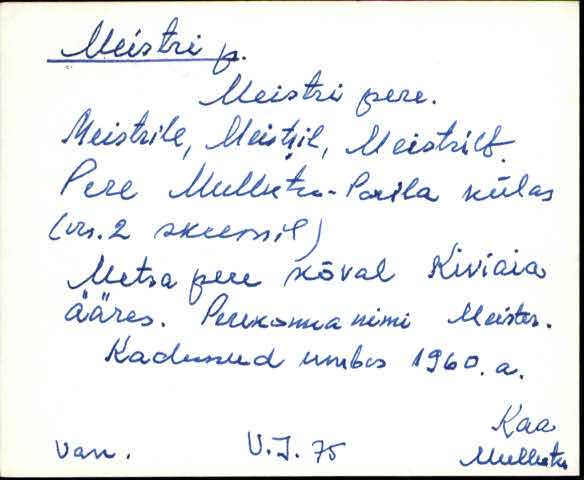 Meistri p.
Meistri pere.
Meistrile, Meistril, Meistrilt.
Pere Mullutu-Parila külas
(nr. 2 skeemil)
Metsa pere kõval Kiviaia
ääres. Perekonna nimi Meister.
Kadunud umbes 1960. a.
Kaa
van. V.J. 75 Mullutu